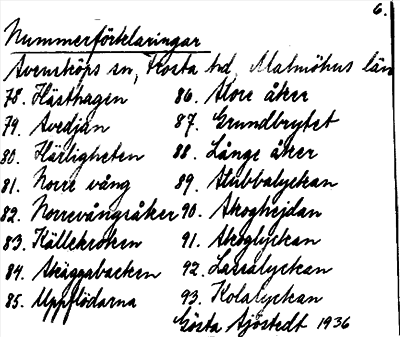 6.
Nummerförklaringar
Svensköps sn, Frosta hd, Malmöhus län
78. Hästhagen
79. Svedjan
80. Härligheten
81. Norre vång
82. Norrevångsåker
83. Källekroken
84. Skäggabacken
85. Uppflödarna
86. Store åker
87. Grundbrytet
88. Långe åker
89. Stubbalyckan
90. Skoghejdan
91. Skoglyckan
92. Lassalyckan
93. Kolalyckan
Gösta Sjöstedt 1936